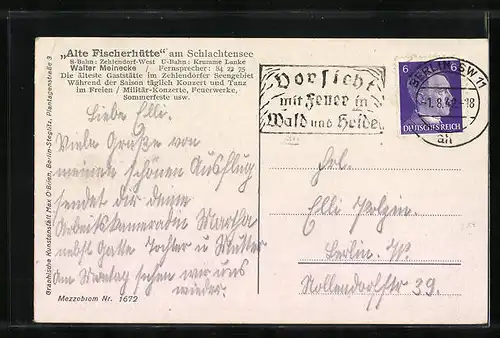 „Alte Fischerhütte“ am Schlachtensee
S-Bahn: Zehlendorf-West U-Bahn: Krumme Lanke
Walter Meinecke / Fernsprecher: 84 22 75
Die älteste Gaststätte im Zehlendorfer Seengebiet
Während der Saison täglich Konzert und Tanz
im Freien / Militär-Konzerte, Feuerwerke,
Sommerfeste usw.
Graphische Kunstanstalt Max O'Brien, Berlin-Steglitz, Plantagenstraße 3
Liebe Elli.
Viele Grüße von
meinem schönen Ausflug
sendet dir deine
Arbeitskameradin Martha
nebst Gatte Tochter u Mutter
Am Montag sehen wir uns
wieder.
Mezzobrom Nr. 1672
Vorsicht
mit Feuer in
Wald und Heide
BERLIN SW 11
-1.8.42-18
6 6
DEUTSCHES REICH
an
Frl.
Elli Polzin.
Berlin. W.
Nollendorfstr 39.